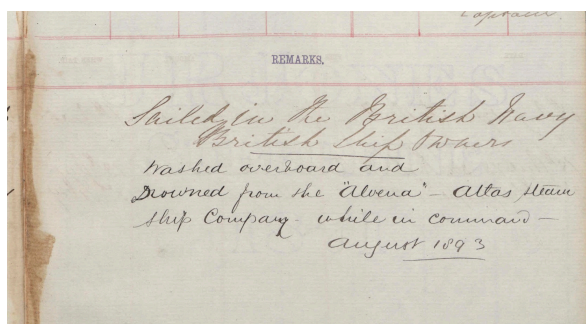 Captain
REMARKS.
Sailed in the British Navy
British Ship Owners
Washed overboard and
Drowned from the "Alvena" - Atlas Steam
Ship Company - while in command -
August 1893